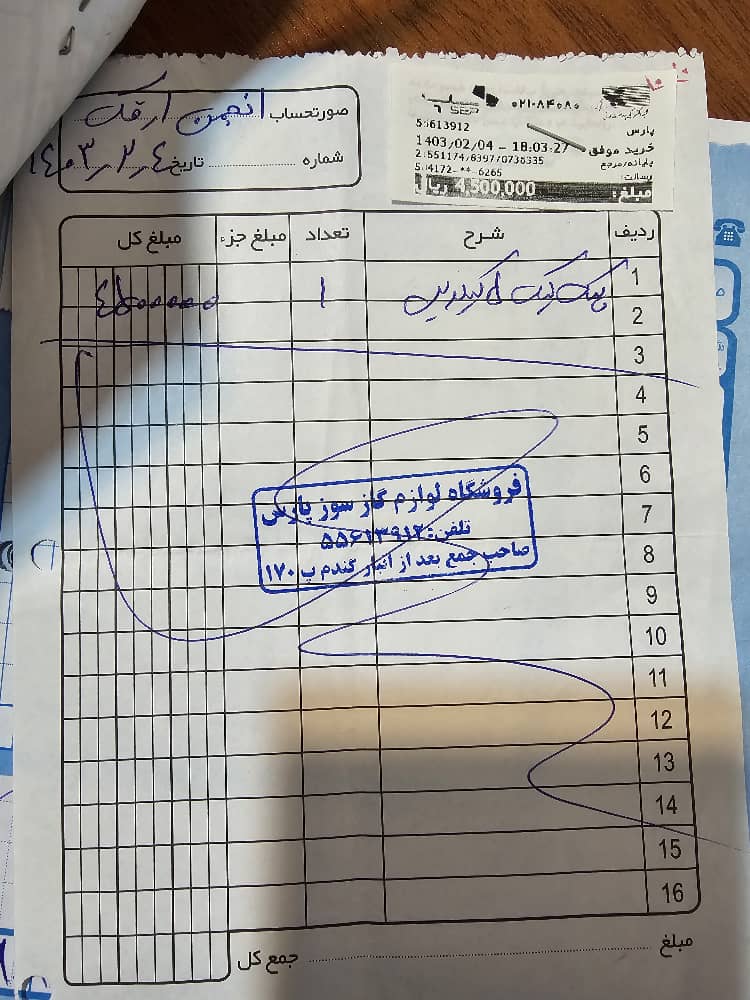 صورتحساب انجمن ارفک
شماره ........ تاریخ ۱۴۰۳٫۲٫۴
SEP ۰۲۱-۸۴۰۸۰
پارس
55613912
خرید موفق
1403/02/04 - 18:03:27
پایانه/مرجع:
رسالت:
مبلغ: 4,500,000 ریال
ردیف شرح تعداد مبلغ جزء مبلغ کل
1 ۱ ۴۵۰۰۰۰۰
2
3
4
5
6
7
8
9
10
11
12
13
14
15
16
فروشگاه لوازم گاز سوز پارس
تلفن: ۵۵۶۱۳۹۱۲
صاحب جمع بعد از انبار گندم پ ۱۷۰
مبلغ ........ جمع کل